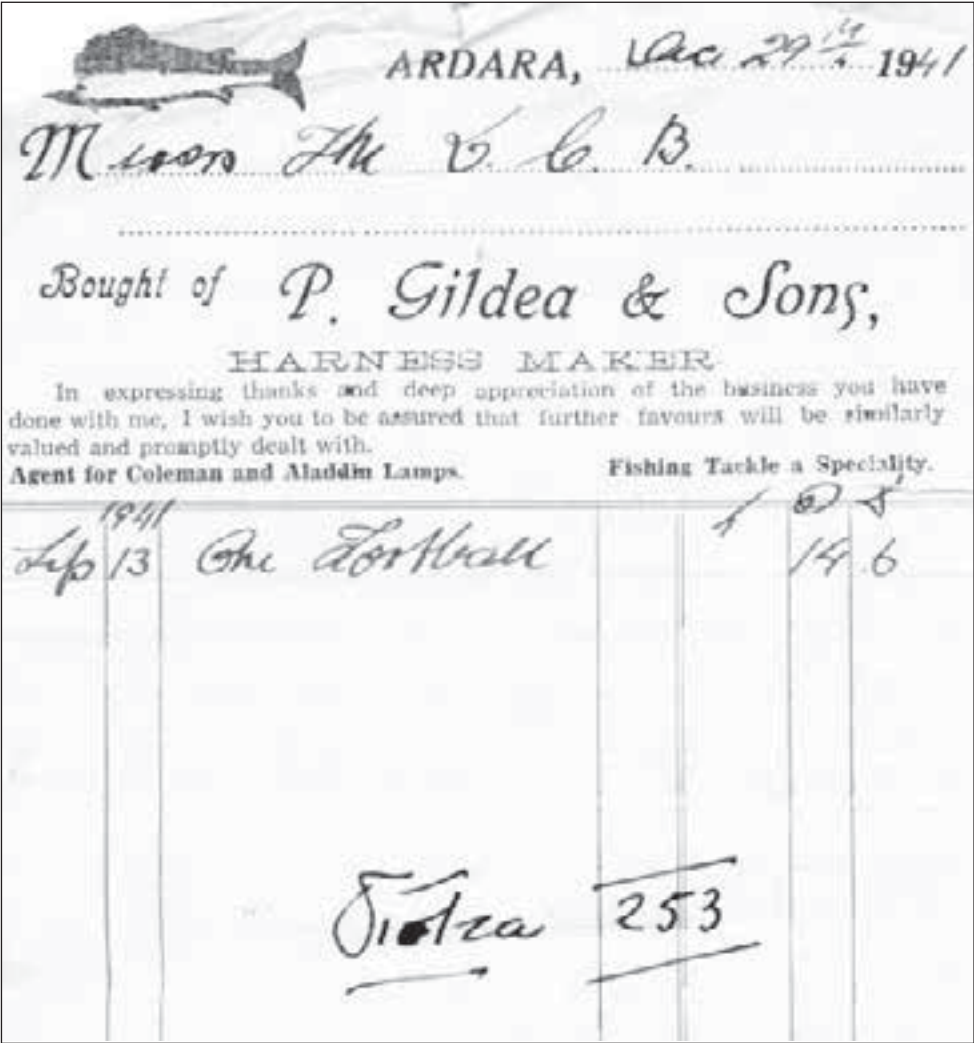 ARDARA, Dec 29th 1941
Messrs The L. C. B.
Bought of P. Gildea & Sons,
HARNESS MAKER
In expressing thanks and deep appreciation of the business you have
done with me, I wish you to be assured that further favours will be similarly
valued and promptly dealt with.
Agent for Coleman and Aladdin Lamps. Fishing Tackle a Speciality.
1941
Sep 13 One Football 14 6
Díolta 253